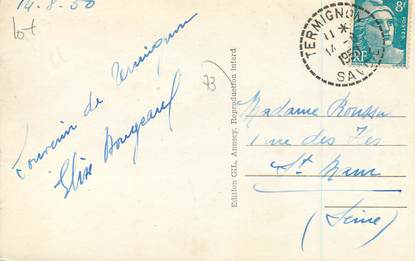 14-8-50
lot
Souvenir de Termignon
Elise
Edition GIL, Annecy. Reproduction interd
TERMIGNON
11 *
14 -8
SAV
8F
POSTES
RF
Madame Roussa
rue des
St Maur
(Seine)